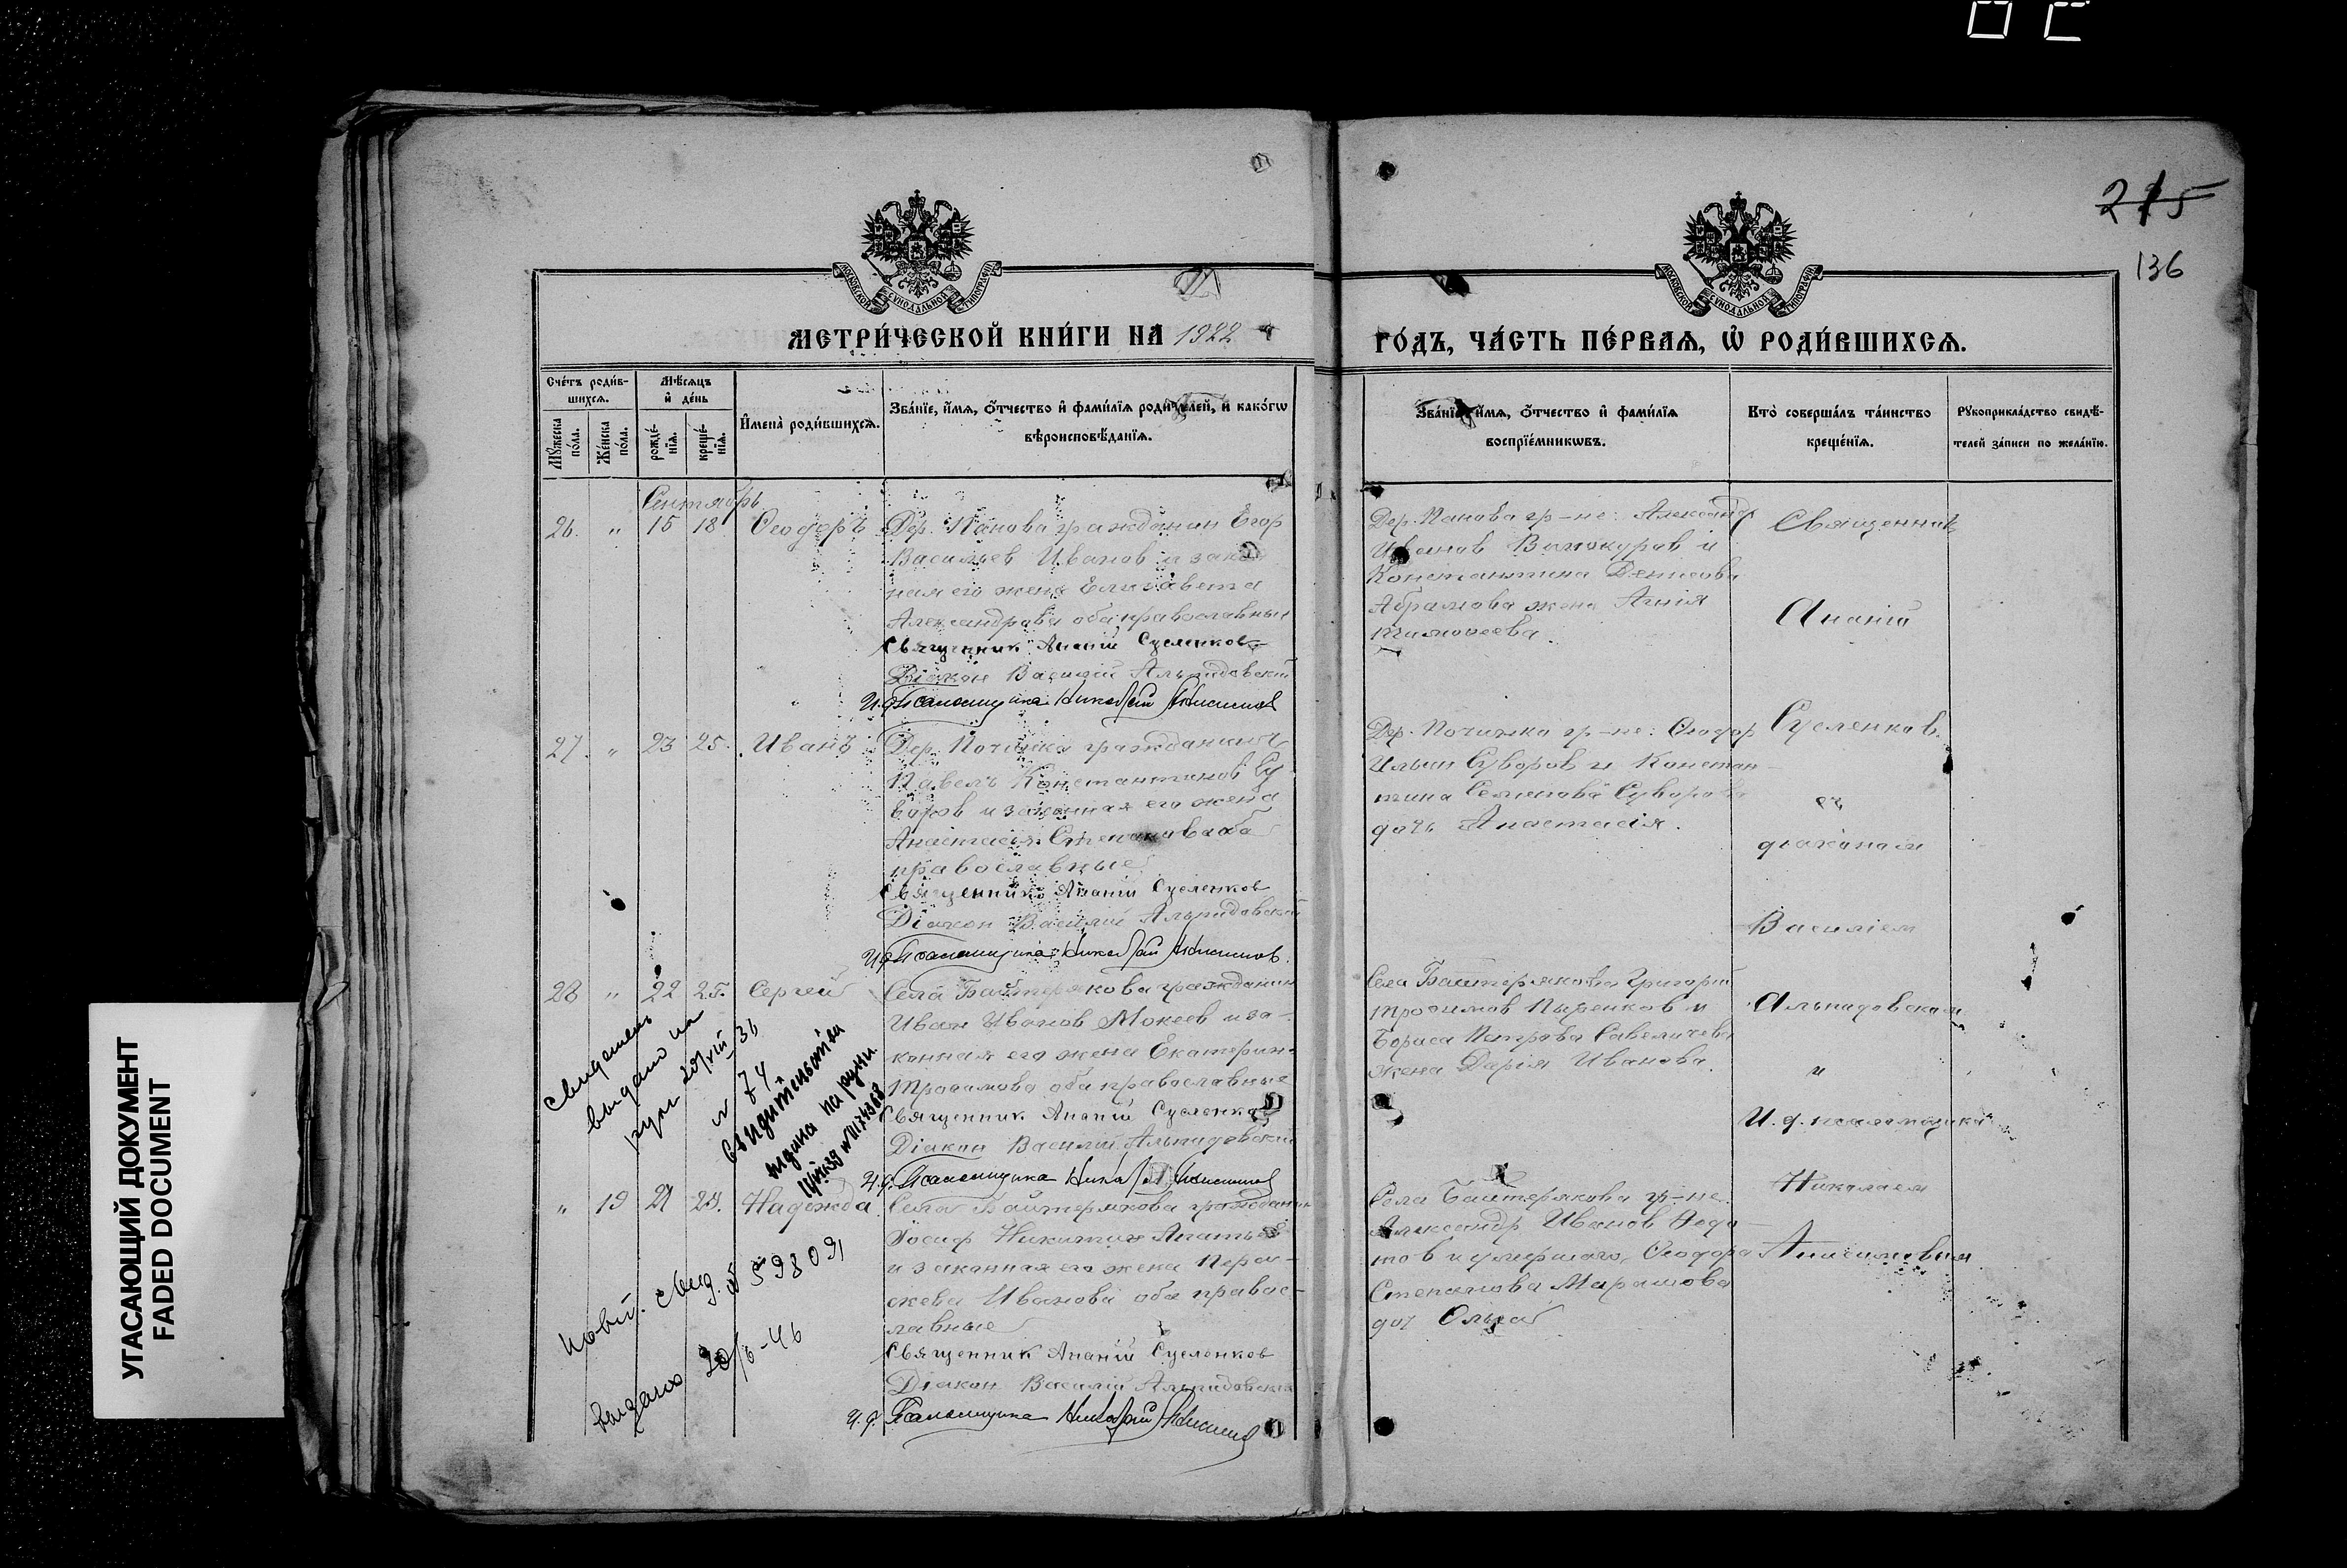 215
136
МЕТРИ́ЧЕСКОЙ КНИ́ГИ НА 1922
ГО́ДЪ, ЧА́СТЬ ПЕ́РВАѦ, Ѡ҆ РОДИ́ВШИХСѦ.
Сче́тъ роди́в-
шихсѧ.
Мꙋ́жеска по́ла.
Же́нска по́ла.
Мѣ́сѧцъ
и҆ де́нь
рожде́-
нїѧ.
креще́-
нїѧ.
И҆мена̀ роди́вшихсѧ.
Зва́нїе, и҆́мѧ, ѻ҆́тчество и҆ фами́лїѧ роди́телей, и҆ како́гѡ
вѣроисповѣ́данїѧ.
Зва́нїе, и҆́мѧ, ѻ҆́тчество и҆ фами́лїѧ
воспрїе́мникѡвъ.
Кто̀ соверша́лъ та́инство
креще́нїѧ.
Рꙋкоприкла́дство свидѣ́-
телей за́писи по жела́нїю.
Сентябрь
26. " 15 18 Ѳеодоръ
Дер. Панова гражданин Егор
Васильев Иванов и закон
ная его жена Елизавета
Александрова оба православныи
Священник Ананій Сусленков
Діакон Василій Альпидовский
И.д. Псаломщика Николай Анисимов
Дер. Панова гр-не: Александр
Иванов Винокуров и
Константина Денисова
Абрамова жена Агнія
Тимофеева.
27. " 23 25. Иванъ
Дер. Починка гражданинъ
Павелъ Константинов Су
воров и законная его жена
Анастасія Степановa оба
православные
Священник Ананій Сусленков
Діакон Василій Альпидовский
И.д. Псаломщика Николай Анисимов.
Дер. Починка гр-не: Ѳеодор
Ильин Суворов и Констан-
тина Семенова Суворова
дочь Анастасія.
28 " 22 25. Сергей
Села Байтерякова гражданин
Иван Иванов Мокеев и за-
конная его жена Екатерина
Трофимова оба православные
Священник Ананій Сусленков
Діакон Василій Альпидовский
И.д. Псаломщика Николай Анисимов
Села Байтерякова Григорій
Трофимов Пыренков и
Бориса Петрова Савеличева
жена Дарія Иванова.
выдано на
руки
N 74
Свидительства
на руки
" 19 21 25. Надежда
Села Байтерякова гражданин
Іосиф Никитин Апатьев
и законная его жена Парас-
кева Иванова оба правос-
лавные
Священник Ананій Сусленков
Діакон Василій Альпидовский
И.д. Псаломщика Николай Анисимов
Села Байтерякова гр-не
Александр Иванов Федо-
тов и умершаго Ѳеодора
Степанова Марамова
доч Ольга
Повт. свид. N 598091
выдано 20/6-46
Священникъ
Ананій
Сусленков
съ
діаконом
Василіем
Альпидовским
и
И.д. псаломщика
Николаем
Анисимовым
УГАСАЮЩИЙ ДОКУМЕНТ
FADED DOCUMENT